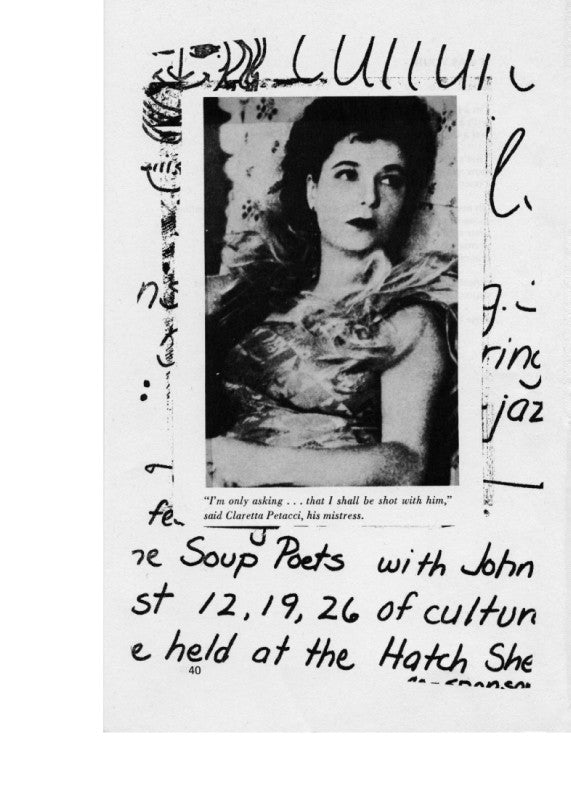 g.i
ring
jaz
"I'm only asking . . . that I shall be shot with him,"
said Claretta Petacci, his mistress.
fe
ne Soup Poets with John
st 12, 19, 26 of cultur
e held at the Hatch She
40